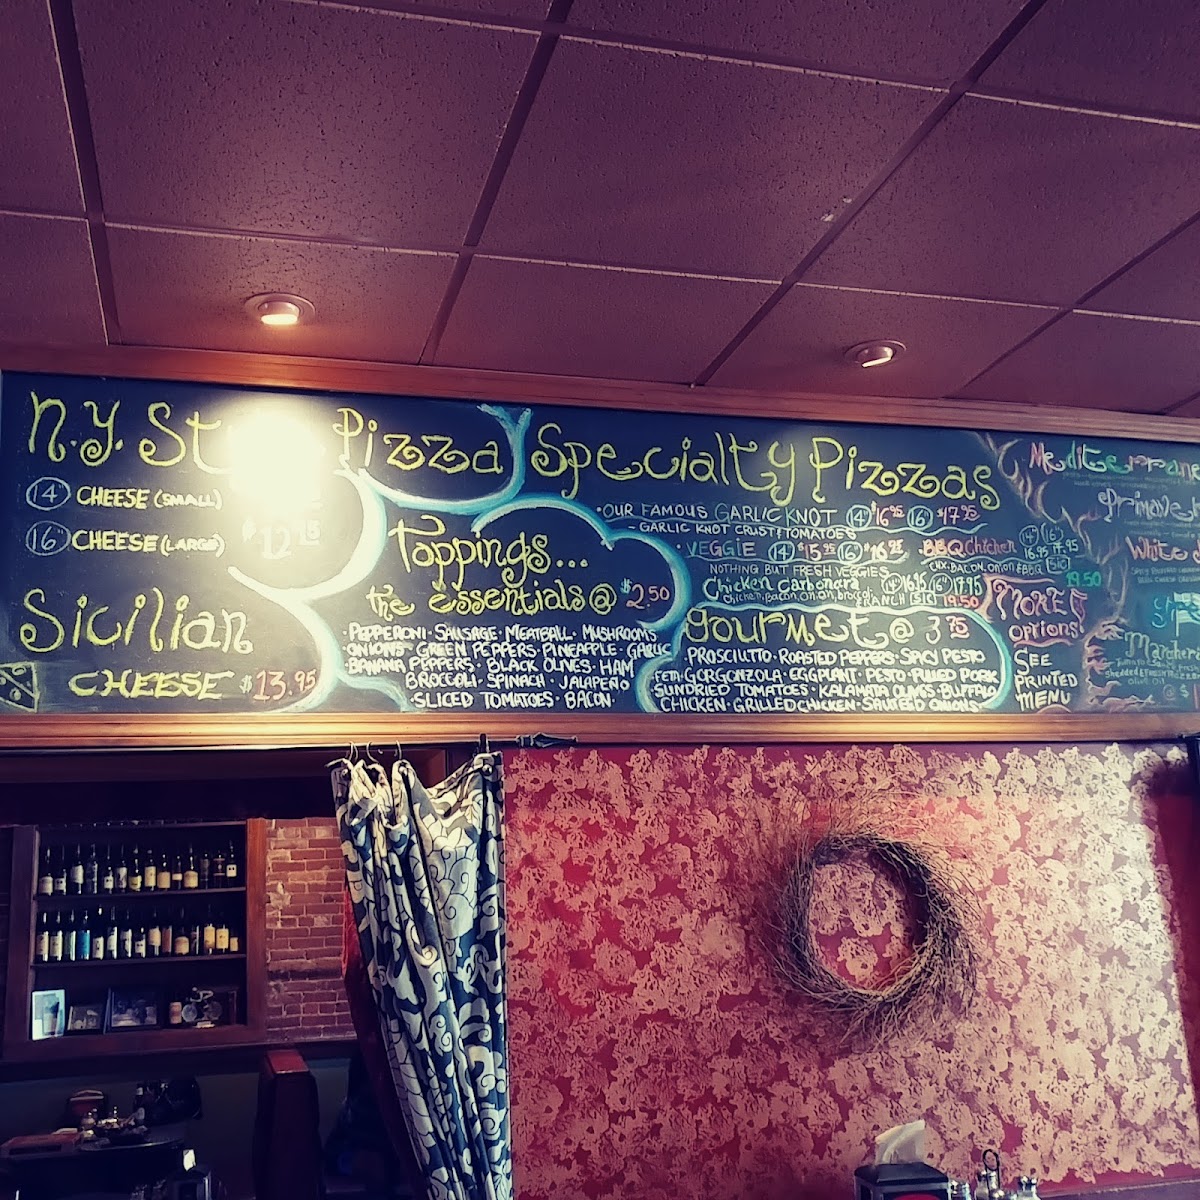 N.Y. Style Pizza
14" CHEESE (SMALL)
16" CHEESE (LARGE) $12
Sicilian
CHEESE $13.95
Toppings...
the essentials @ $2.50
• PEPPERONI • SAUSAGE • MEATBALL • MUSHROOMS
ONIONS • GREEN PEPPERS • PINEAPPLE • GARLIC
BANANA PEPPERS • BLACK OLIVES • HAM
BROCCOLI • SPINACH • JALAPEÑO
SLICED TOMATOES • BACON
Specialty Pizzas
• OUR FAMOUS GARLIC KNOT 14" $16.95 16" $17.95
- GARLIC KNOT CRUST & TOMATOES
• VEGGIE 14" $15.95 16" $16.95
NOTHING BUT FRESH VEGGIES
Chicken Carbonara 14" 16.95 16" 17.95
Chicken, Bacon, Onion, broccoli, RANCH (SIC) 19.50
• BBQ Chicken 14" 16"
16.95 17.95
CHX, BACON, ONION & BBQ (SIC)
19.50
gourmet @ 3.75
PROSCIUTTO • ROASTED PEPPERS • SPICY PESTO
FETA • GORGONZOLA • EGGPLANT • PESTO • PULLED PORK
SUNDRIED TOMATOES • KALAMATA OLIVES • BUFFALO
CHICKEN • GRILLED CHICKEN • SAUTEED ONIONS
MORE
options!
SEE
PRINTED
MENU
Mediterranean
Primave
White
Margheri